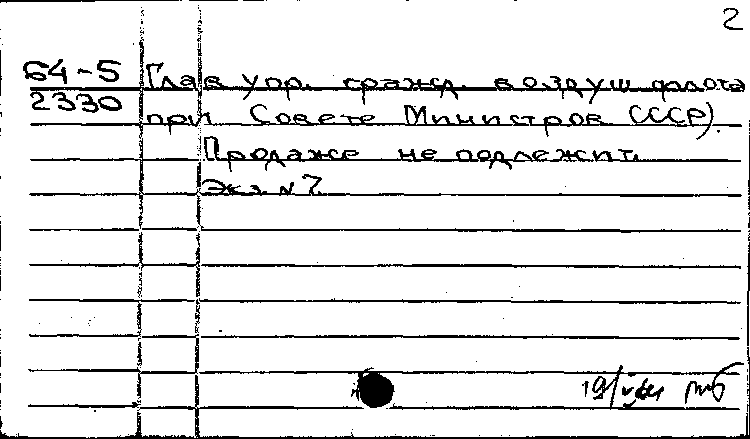 2
64-5 Глав упр. гражд. воздуш флота
2330 при Совете Министров СССР).
Продаже не подлежит.
Экз. N 7.